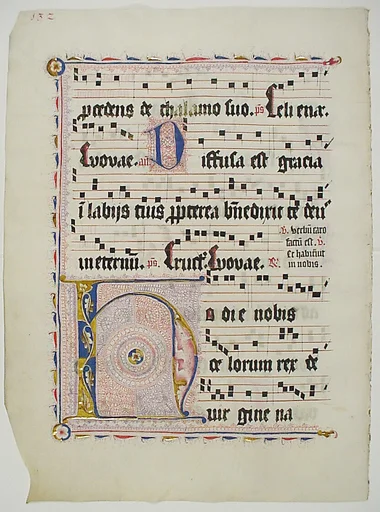 132
procedens de thalamo suo. ps Celi enar.
Euouae. an Diffusa est gracia
i labijs tuis ppterea bn̄edixit te deu
in eternū. ps. Eruct. Euouae. R.
V. verbū caro
factū est. V.
Et habitāuit
in nobis.
Ho die nobis
ce lorum rex de
uir gine na